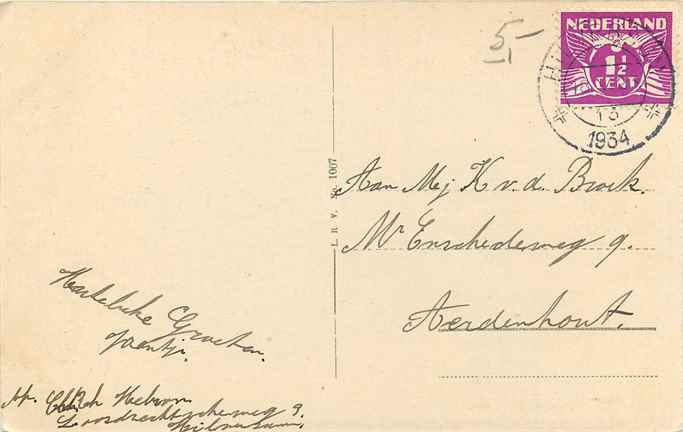 5,-
NEDERLAND
1½
CENT
13
1934
L. R. V. No. 1007
Aan Mej K v. d. Broek.
Mr Enschedeweg 9.
Aerdenhout.
Hartelijke Groeten
Loosdrechtscheweg 9.
Hilversum.